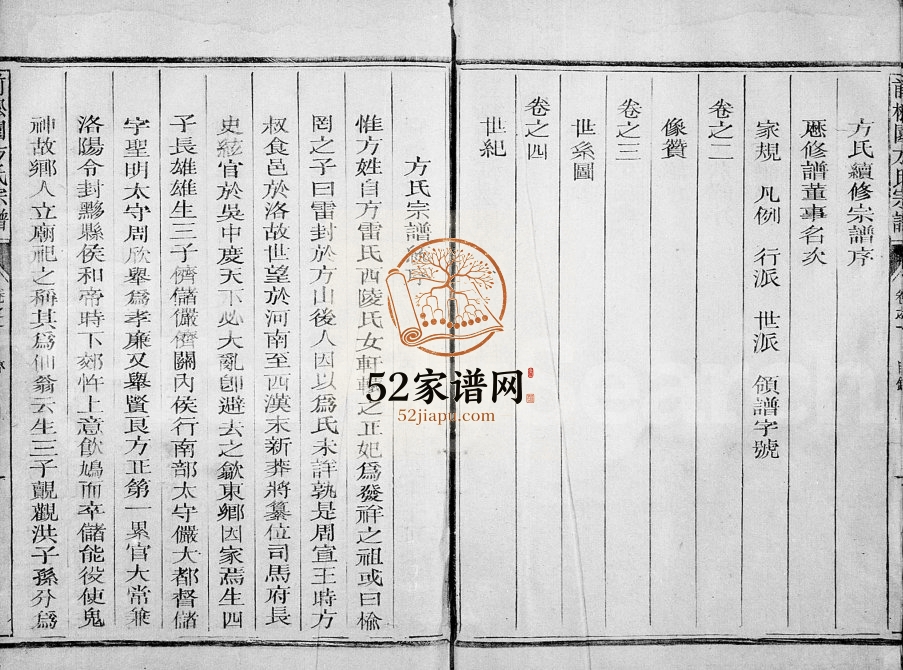 方氏續修宗譜序
歷修譜董事名次
家規 凡例 行派 世派 領譜字號
卷之二
像贊
卷之三
世系圖
卷之四
世紀
方氏宗譜
惟方姓自方雷氏西陵氏女軒轅之正妃爲發祥之祖或曰榆
罔之子曰雷封於方山後人因以爲氏未詳孰是周宣王時方
叔食邑於洛故世望於河南至西漢末新莽將纂位司馬府長
史紘官於吳中度天下必大亂卽避去之歙東鄉因家焉生四
子長雄雄生三子儕儲儼儕關內侯行南部太守儼大都督儲
字聖明太守周欣舉爲孝廉又舉賢良方正第一累官太常兼
洛陽令封黟縣侯和帝時下郊忤上意飲鳩而卒儲能役使鬼
神故鄉人立廟祀之稱其爲仙翁云生三子覿觀洪子孫分爲
方氏宗譜
52家谱网
52jiapu.com